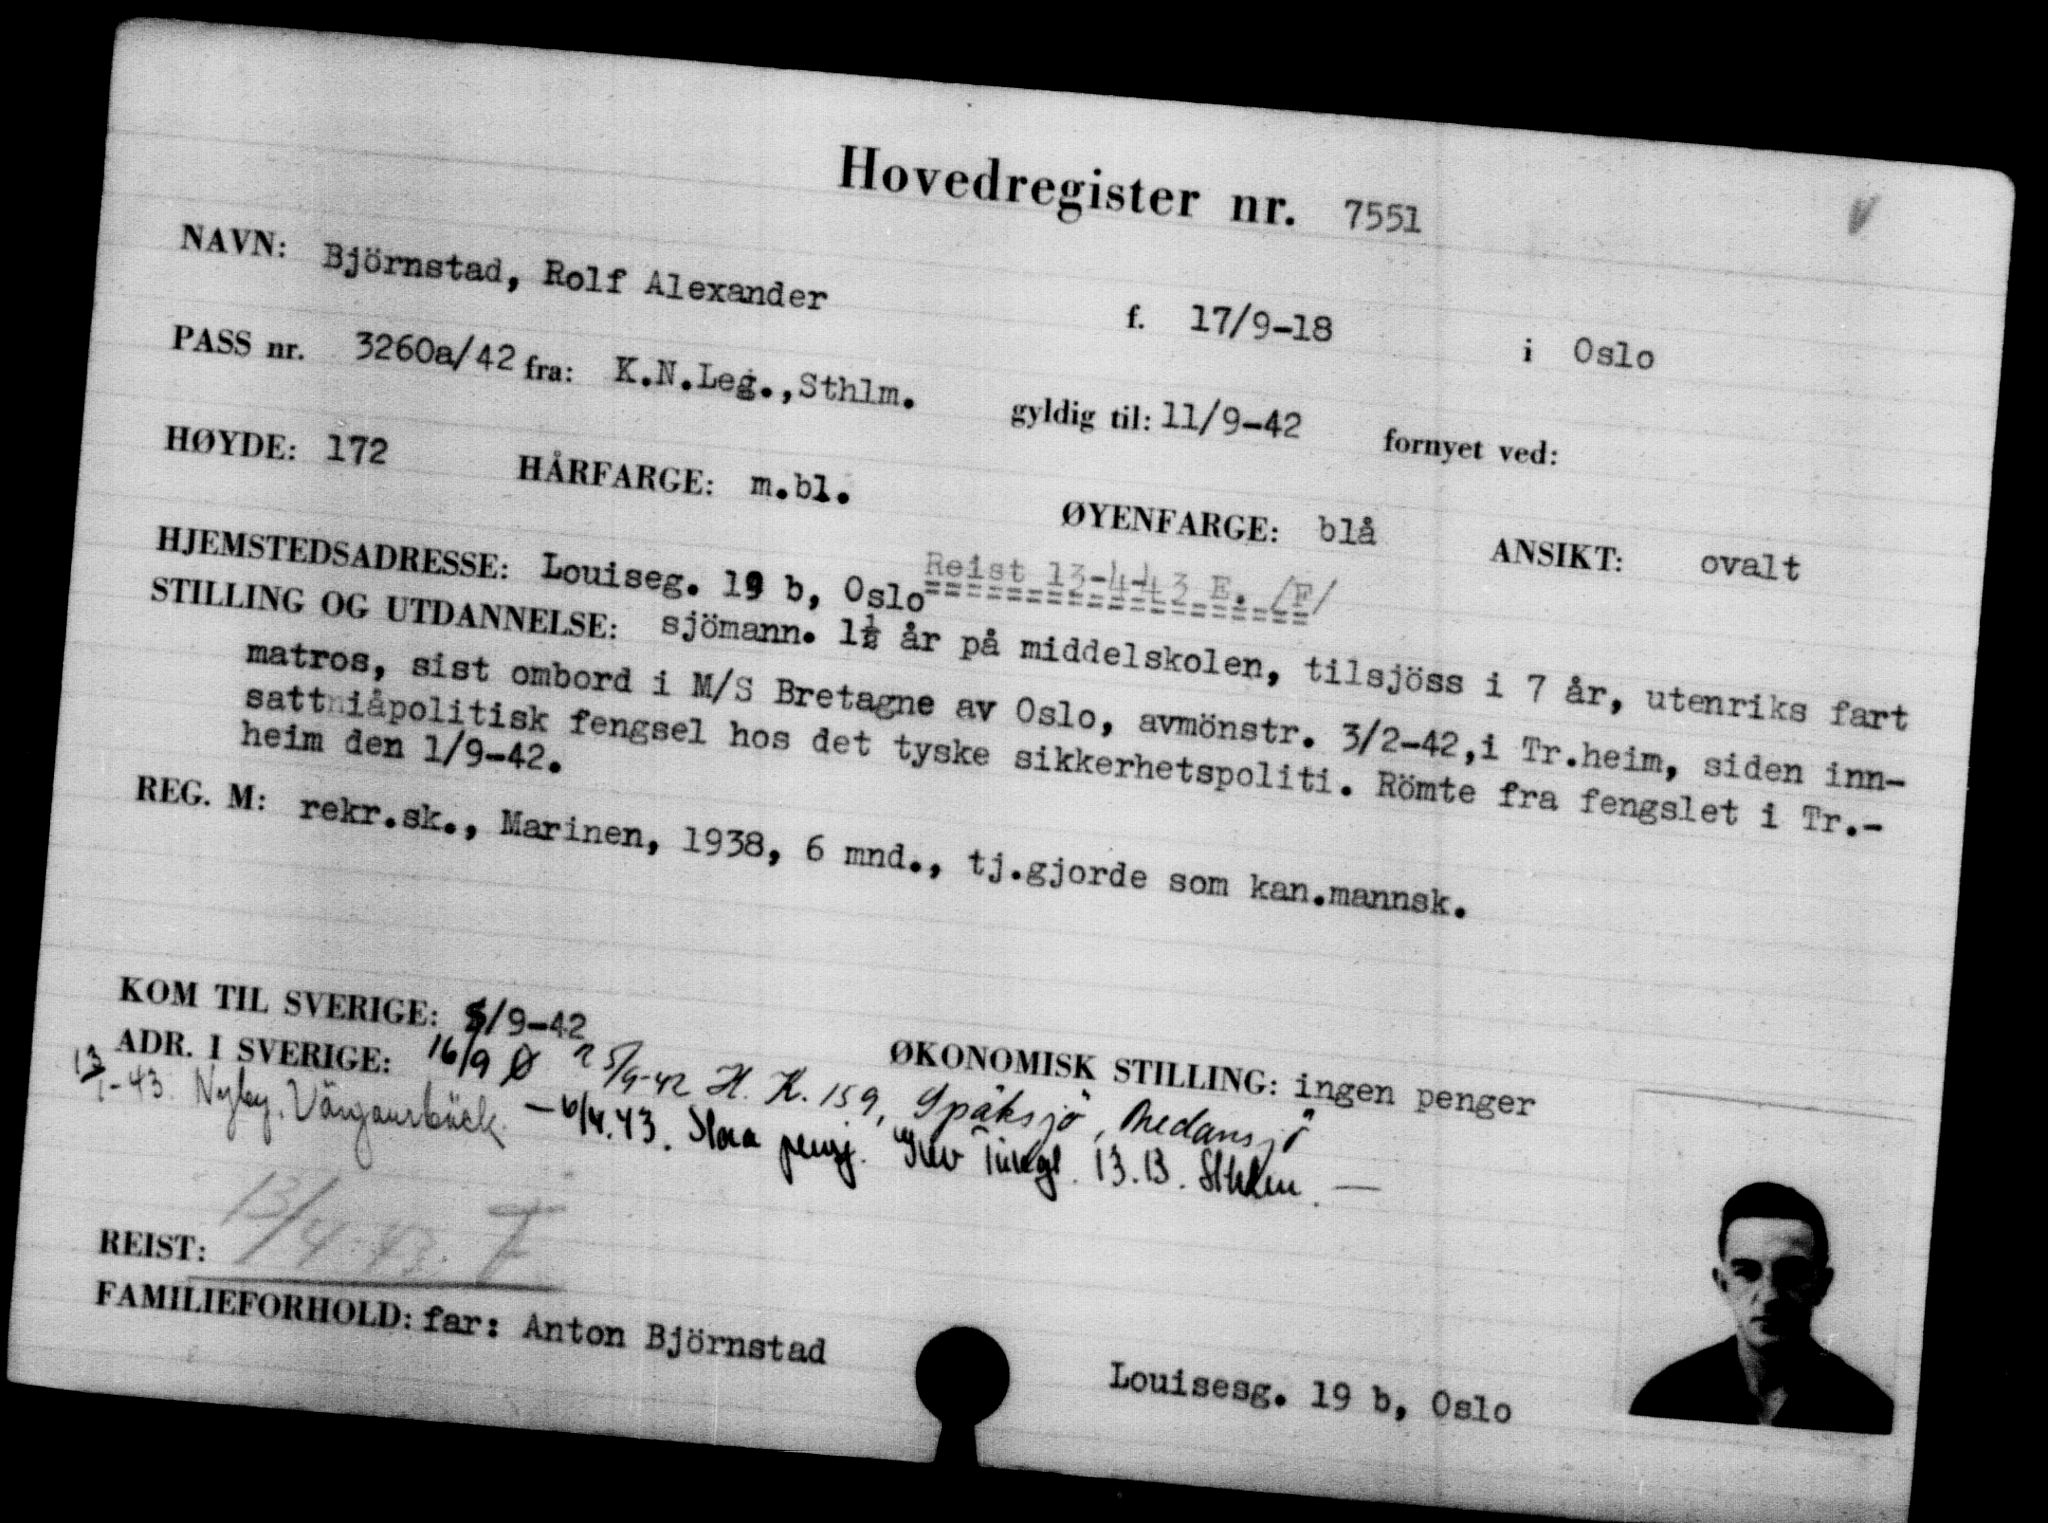 Hovedregister nr. 7551
NAVN: Björnstad, Rolf Alexander f. 17/9-18 i Oslo
PASS nr. 3260a/42 fra: K.N.Leg.,Sthlm. gyldig til: 11/9-42 fornyet ved:
HØYDE: 172 HÅRFARGE: m.bl. ØYENFARGE: blå ANSIKT: ovalt
Reist 13-4-43 E. /F/
HJEMSTEDSADRESSE: Louiseg. 19 b, Oslo
STILLING OG UTDANNELSE: sjömann. 1½ år på middelskolen, tilsjöss i 7 år, utenriks fart
matros, sist ombord i M/S Bretagne av Oslo, avmönstr. 3/2-42,i Tr.heim, siden inn-
sattniåpolitisk fengsel hos det tyske sikkerhetspoliti. Römte fra fengslet i Tr.-
heim den 1/9-42.
REG. M: rekr.sk., Marinen, 1938, 6 mnd., tj.gjorde som kan.mannsk.
KOM TIL SVERIGE: /9-42 ØKONOMISK STILLING: ingen penger
ADR. I SVERIGE: 16/9 Ø 25/9-42 H. K. 159, Spåksjö, Bredansjö
13/1-43. Nyby, - 6/4.43. pensj. 13.B. Sthlm. —
REIST: 13/4-43. F
FAMILIEFORHOLD: far: Anton Björnstad Louisesg. 19 b, Oslo